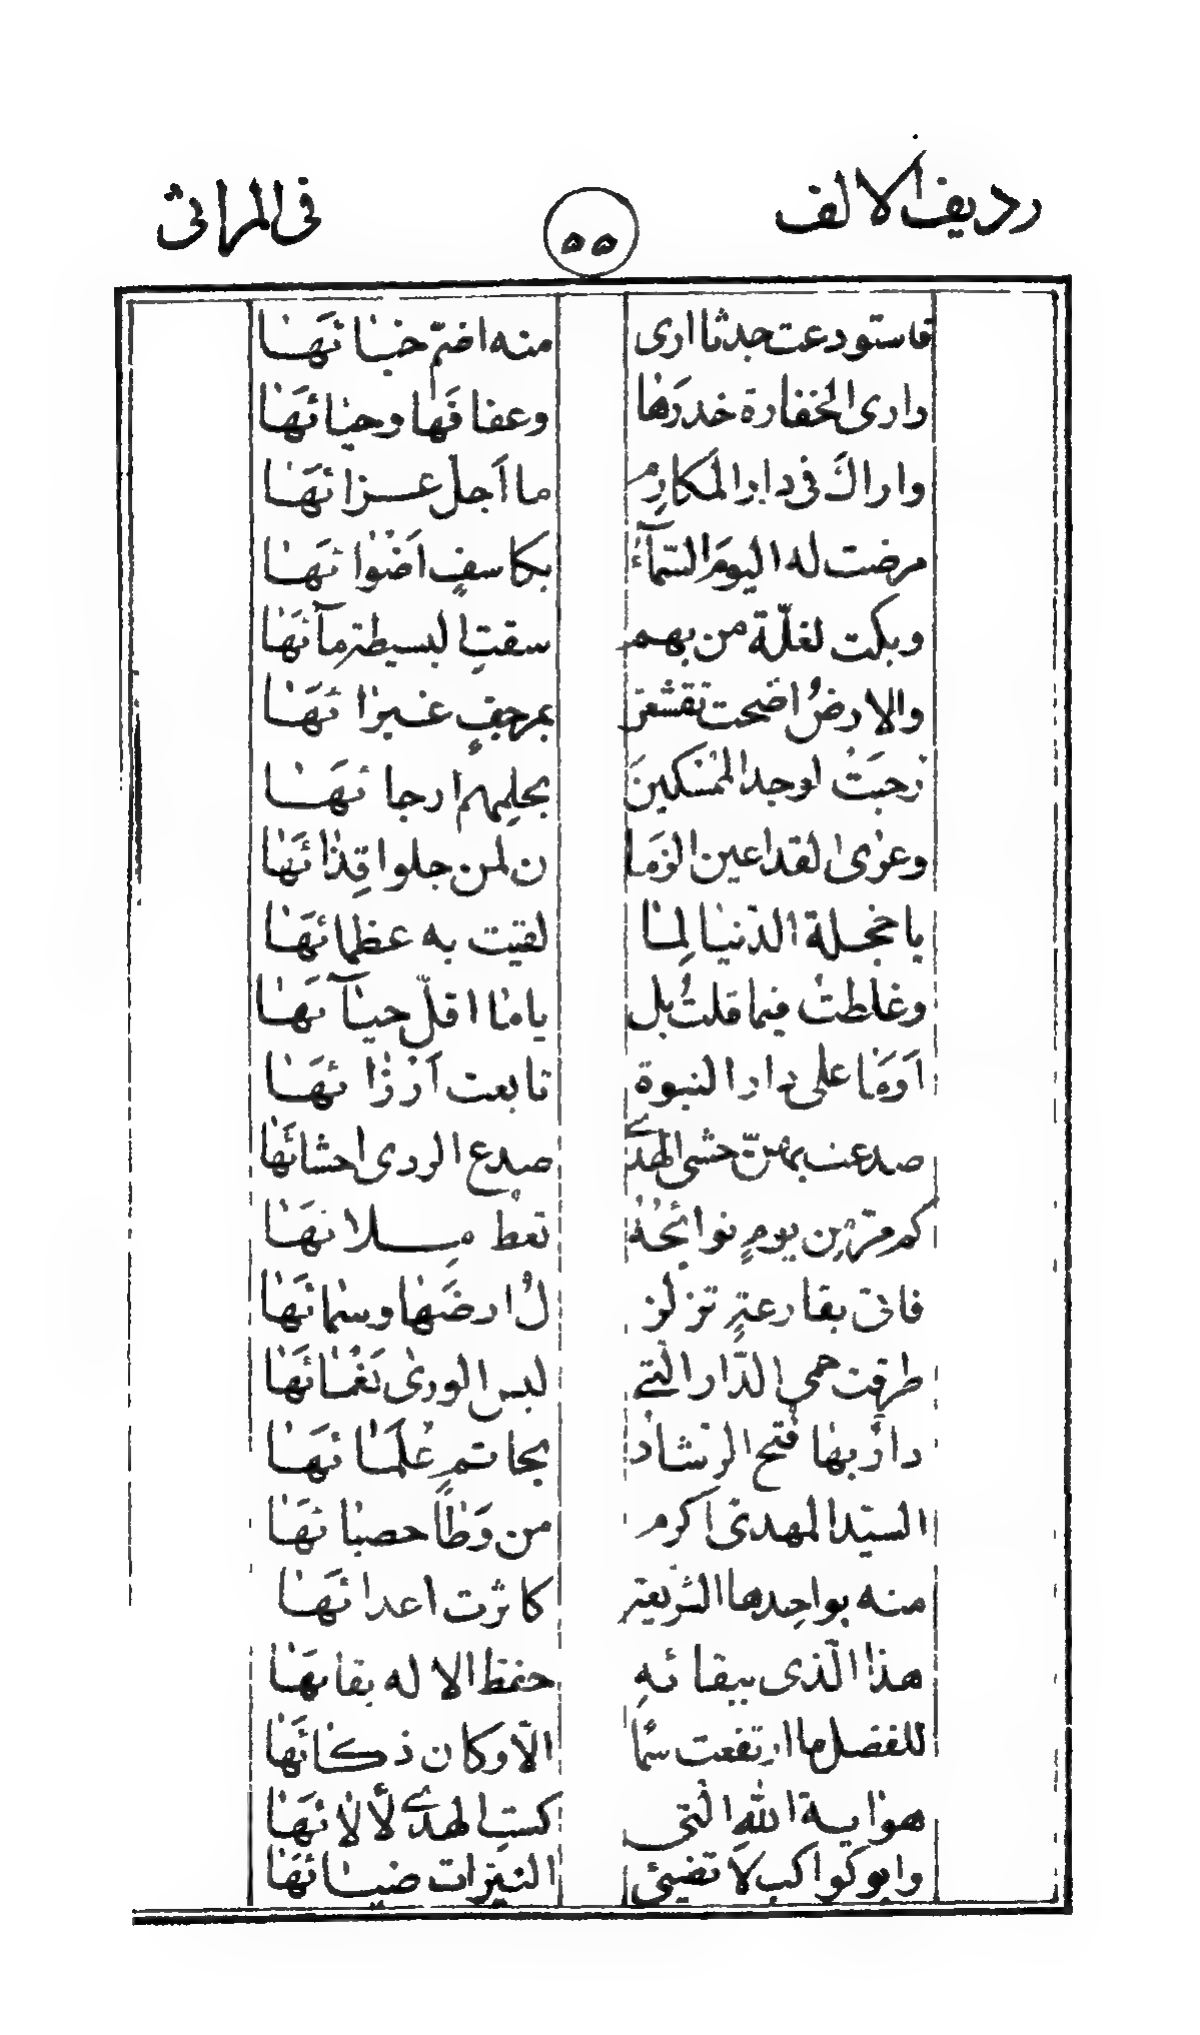 رديف الالف
٥٥
فى المراثى
فاستودعت جدثا ارى منه اضمّ خبائهَا
دارى الخفارة خدرَها وعفافَها وحيائهَا
واراكَ فى دار المكارِم ما اَجلّ عزائهَا
مرضت له اليومَ السّمآءُ بكاسفٍ اَضوائهَا
وبكت لغلّة من بهم سقتِ البسيطة مآئهَا
والارضُ اضحت تقشعر بمرجفٍ غبرائهَا
رحبَتْ لوجد الممسكينَ بحلمِهم ارجائهَا
وعزى لقد اعين الزَما ن لمن جلوا قِذائهَا
يا خجلة الدّنيا لِما لقيت به عظمائهَا
وغلطتُ فيما قلتُ بل يا ما اقلّ حيآئهَا
اَوَمَا على دار النبوة تابعت اَرزائهَا
صدعت بهنّ حشى الهدے صدع الردى احشائهَا
كم مرّ من يومٍ نوائحُهُ تعط مِلائهَا
فاتى بقارعةٍ تزلز لُ ارضَها وسمائهَا
طرقت حمى الدّار الّتے لبس الورىٰ نَغمائهَا
دارٌ بها فُتح الرشاد بخاتمِ عُلَمائهَا
السيّد المهدى اكرم من وَطأ حصبائهَا
منه بواحدها الشريعة كاثرت اعدائهَا
هذا الّذى ببقائهِ حفظ الاله بقائهَا
للفضل ما ارتفعت سما الّا وكان ذكائهَا
هو اية اللهِ الّتى كست الهدے لألائهَا
وابو كواكب لَا تضيئ النيّرات ضيائهَا